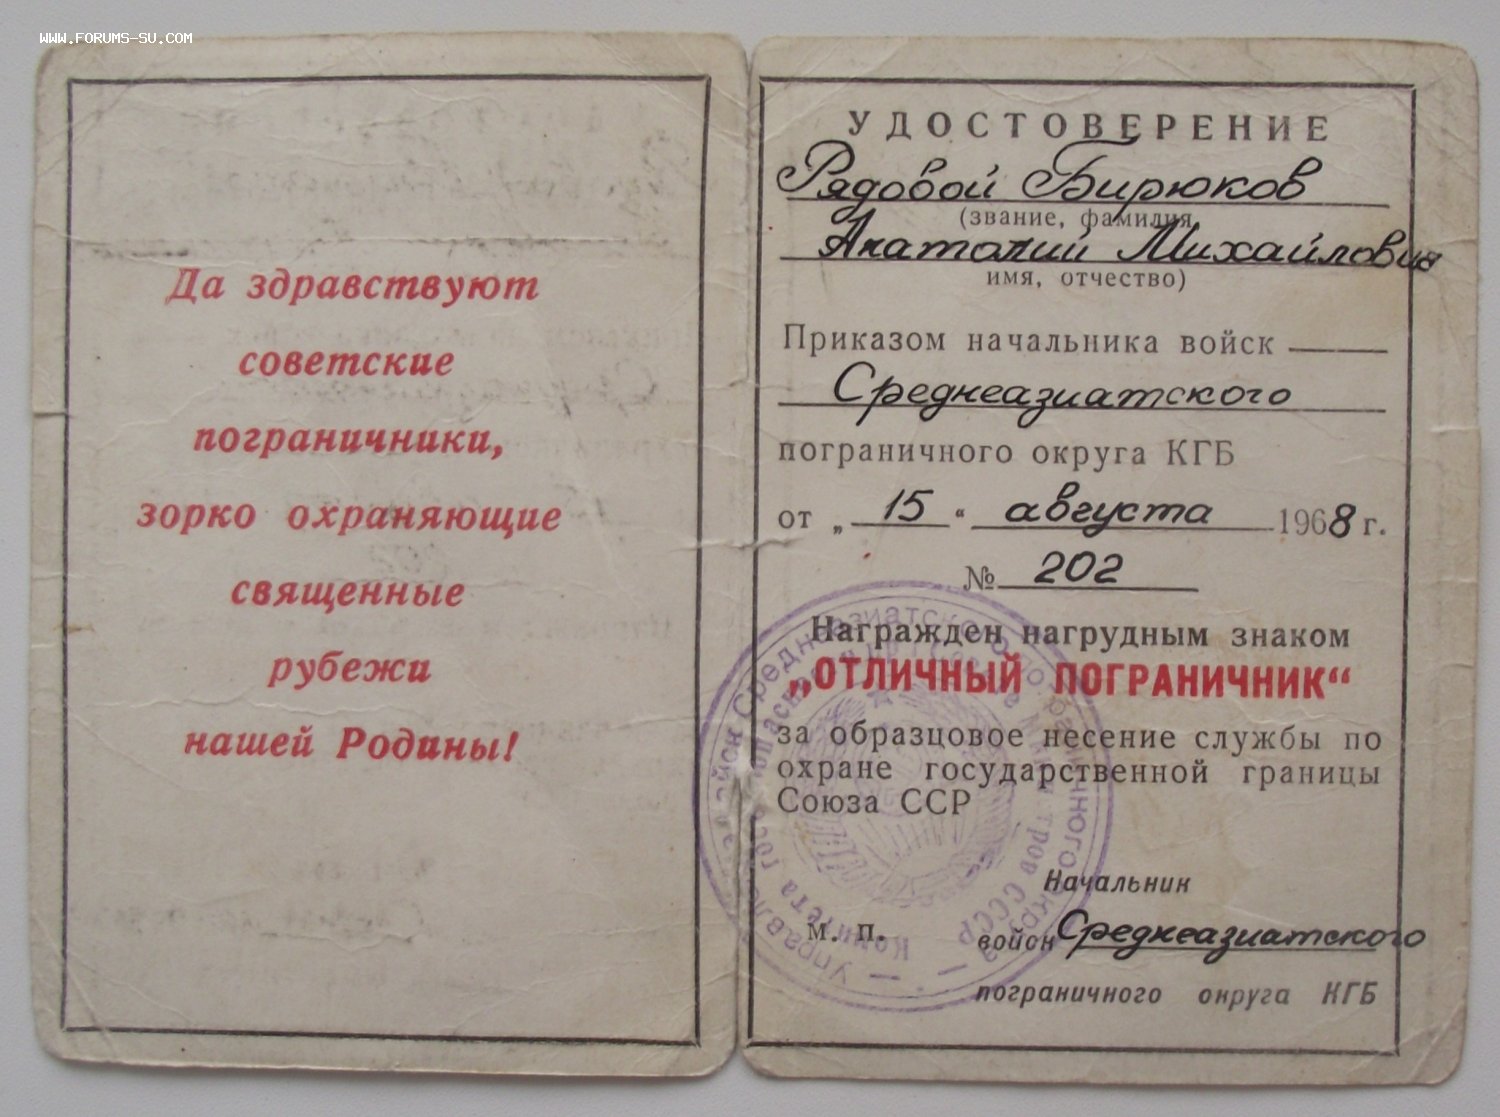 WWW.FORUMS-SU.COM
Да здравствуют
советские
пограничники,
зорко охраняющие
священные
рубежи
нашей Родины!
УДОСТОВЕРЕНИЕ
Рядовой Бирюков
(звание, фамилия,
Анатолий Михайлович
имя, отчество)
Приказом начальника войск
Среднеазиатского
пограничного округа КГБ
от „ 15 “ августа 1968 г.
№ 202
Награжден нагрудным знаком
„ОТЛИЧНЫЙ ПОГРАНИЧНИК“
за образцовое несение службы по
охране государственной границы
Союза ССР
Начальник
м. п.
войск Среднеазиатского
пограничного округа КГБ
войск Среднеазиатского пограничного округа
Комитета
при Совете Министров СССР